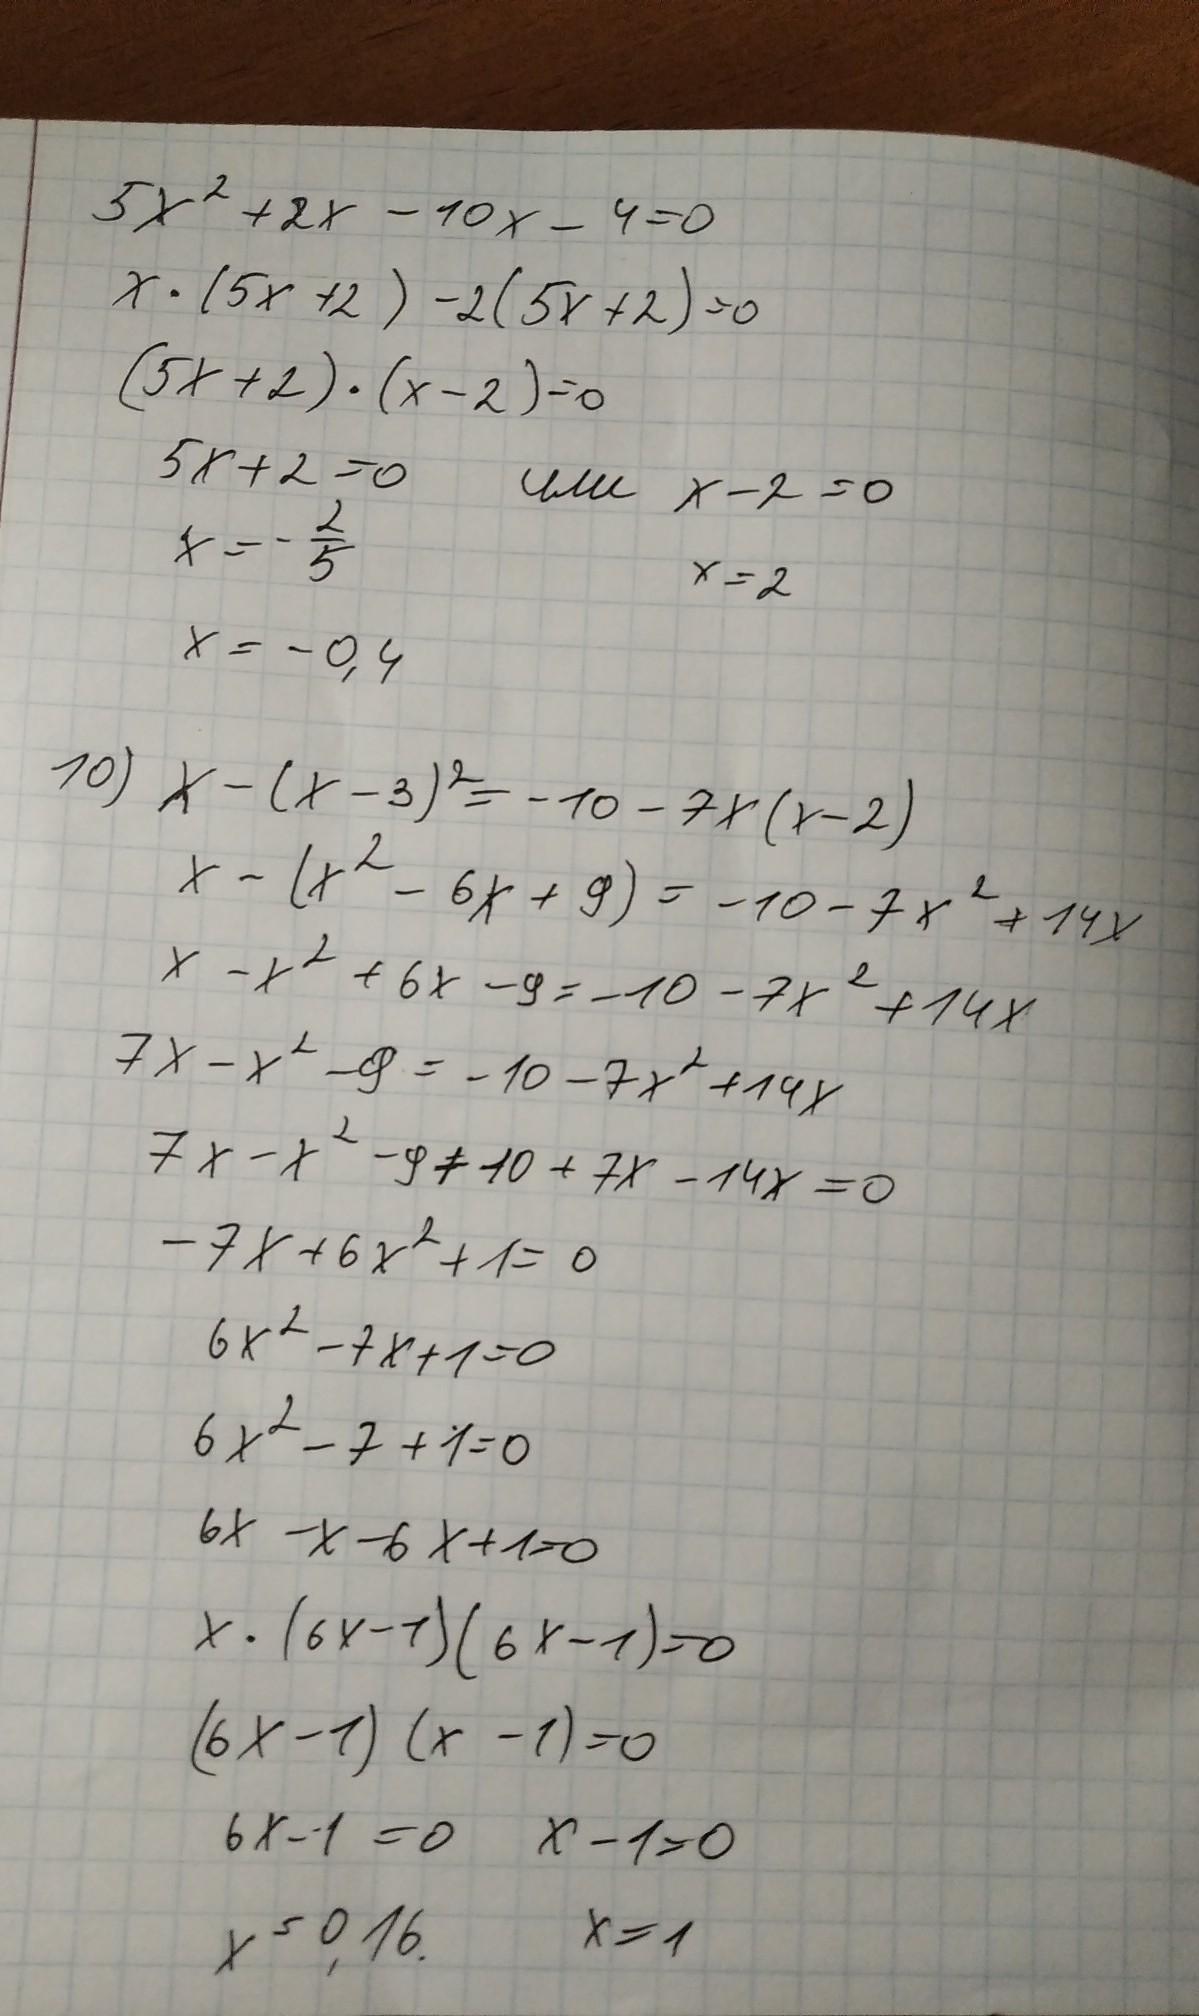 5x² + 2x - 10x - 4 = 0
x · (5x + 2) - 2(5x + 2) = 0
(5x + 2) · (x - 2) = 0
5x + 2 = 0 или x - 2 = 0
x = - 2/5 x = 2
x = -0,4
10) x - (x - 3)² = -10 - 7x(x - 2)
x - (x² - 6x + 9) = -10 - 7x² + 14x
x - x² + 6x - 9 = -10 - 7x² + 14x
7x - x² - 9 = -10 - 7x² + 14x
7x - x² - 9 + 10 + 7x - 14x = 0
-7x + 6x² + 1 = 0
6x² - 7x + 1 = 0
6x² - 7 + 1 = 0
6x - x - 6x + 1 = 0
x · (6x - 1)(6x - 1) = 0
(6x - 1) (x - 1) = 0
6x - 1 = 0 x - 1 = 0
x = 0,16. x = 1